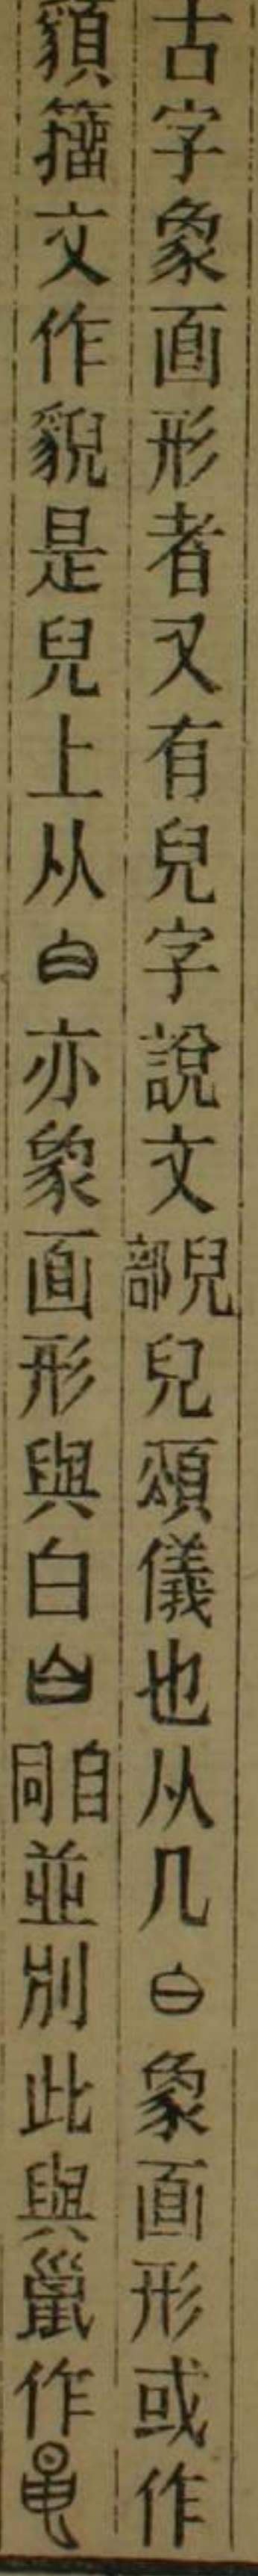 古字象面形者又有皃字說文皃部皃頌儀也从几白象面形或作
䫉籀文作貌是皃上从白亦象面形與白自同並別此與巤作